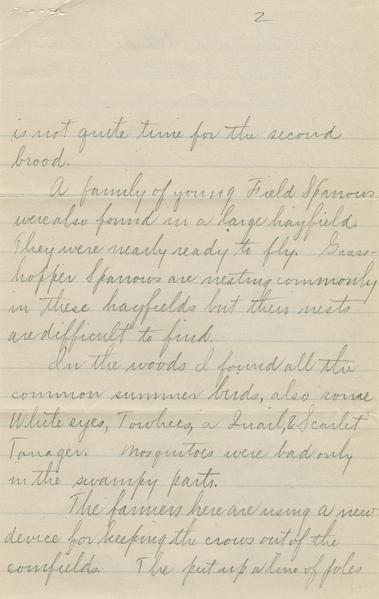 2
is not quite time for the second
brood.
A family of young Field Sparrows
were also found in a large hayfield.
They were nearly ready to fly. Grass-
hopper Sparrows are nesting commonly
in these hayfields but their nests
are difficult to find.
In the woods I found all the
common summer birds, also some
White eyes, Towhees, a Quail, & Scarlet
Tanager. Mosquitoes were bad only
in the swampy parts.
The farmers here are using a new
device for keeping the crows out of the
cornfields. The put up a line of poles